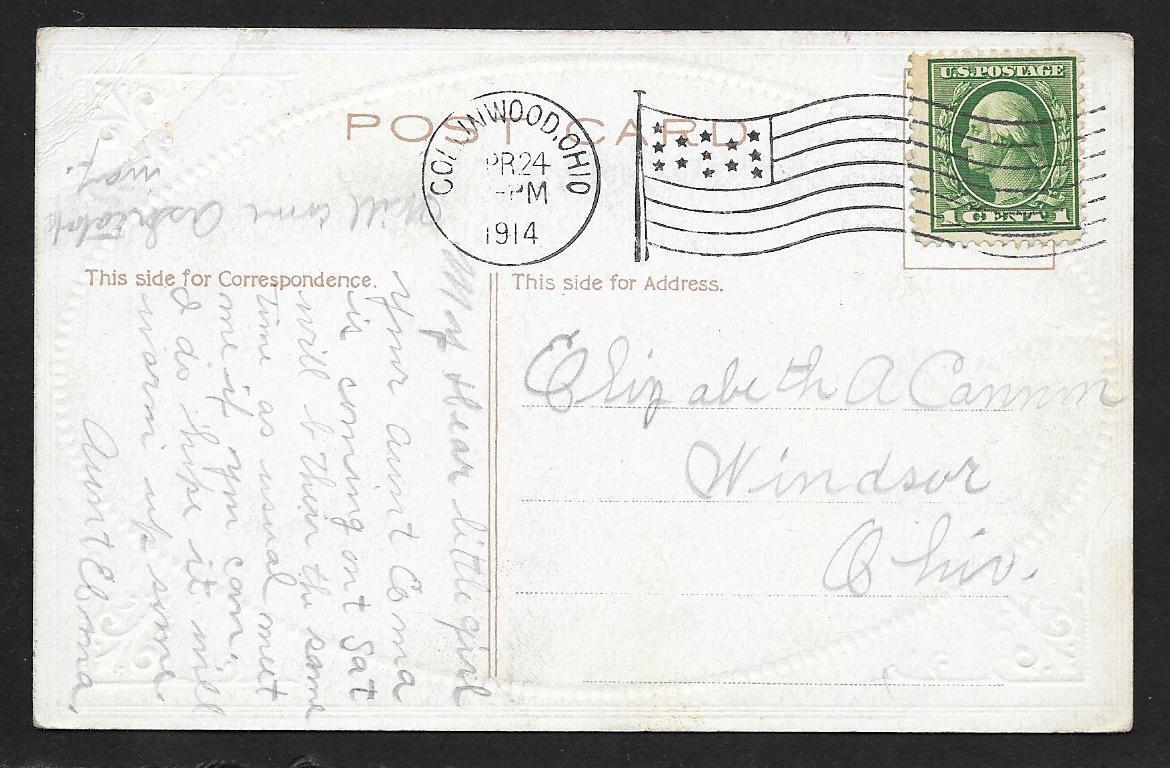 POST CARD
COLLINWOOD, OHIO
PR 24
PM
1914
U.S. POSTAGE
1 CENT 1
This side for Correspondence.
This side for Address.
Elizabeth A Cannon
Windsor
Ohio.
My dear little girl
Your aunt Edna
is coming out Sat
will b then the same
time as usual meet
me if you can
I do hope it will
warm up some
Aunt Edna.
Will come
way.